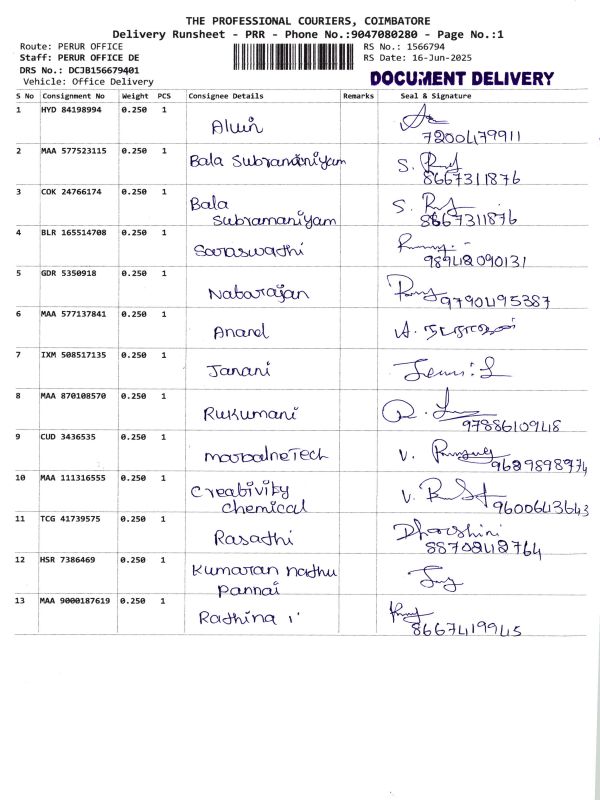 THE PROFESSIONAL COURIERS, COIMBATORE
Delivery Runsheet - PRR - Phone No.:9047080280 - Page No.:1
Route: PERUR OFFICE
RS No.: 1566794
Staff: PERUR OFFICE DE
RS Date: 16-Jun-2025
DRS No.: DCJB156679401
Vehicle: Office Delivery
DOCUMENT DELIVERY
S No Consignment No Weight PCS Consignee Details Remarks Seal & Signature
1 HYD 84198994 0.250 1 Alwin
7200479911
2 MAA 577523115 0.250 1 Bala Subramaniyam S.
8667311876
3 COK 24766174 0.250 1 Bala S.
Subramaniyam 8667311876
4 BLR 165514708 0.250 1 Saraswathi
9894209013 1
5 GDR 5350918 0.250 1 Natarajan
9790495387
6 MAA 577137841 0.250 1 Anand
7 IXM 508517135 0.250 1 Janani
8 MAA 870108570 0.250 1 Rukumani
9788610948
9 CUD 3436535 0.250 1 V.
9629898974
10 MAA 111316555 0.250 1 Creativity V.
chemical 9600643643
11 TCG 41739575 0.250 1 Rasathi Dharshini
8870848764
12 HSR 7386469 0.250 1 Kumaran nathu
Pannai
13 MAA 9000187619 0.250 1 Rathina
8667419945